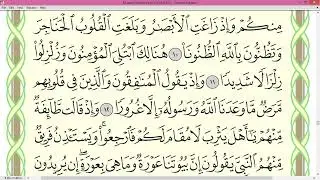 مِنكُمْ وَإِذْ زَاغَتِ ٱلْأَبْصَٰرُ وَبَلَغَتِ ٱلْقُلُوبُ ٱلْحَنَاجِرَ
وَتَظُنُّونَ بِٱللَّهِ ٱلظُّنُونَا۠ ١٠ هُنَالِكَ ٱبْتُلِىَ ٱلْمُؤْمِنُونَ وَزُلْزِلُوا۟
زِلْزَالًا شَدِيدًا ١١ وَإِذْ يَقُولُ ٱلْمُنَٰفِقُونَ وَٱلَّذِينَ فِى قُلُوبِهِم
مَّرَضٌ مَّا وَعَدَنَا ٱللَّهُ وَرَسُولُهُۥٓ إِلَّا غُرُورًا ١٢ وَإِذْ قَالَت طَّآئِفَةٌ
مِّنْهُمْ يَٰٓأَهْلَ يَثْرِبَ لَا مُقَامَ لَكُمْ فَٱرْجِعُوا۟ ۚ وَيَسْتَـْٔذِنُ فَرِيقٌ
مِّنْهُمُ ٱلنَّبِىَّ يَقُولُونَ إِنَّ بُيُوتَنَا عَوْرَةٌ وَمَا هِىَ بِعَوْرَةٍ ۖ إِن يُرِيدُونَ